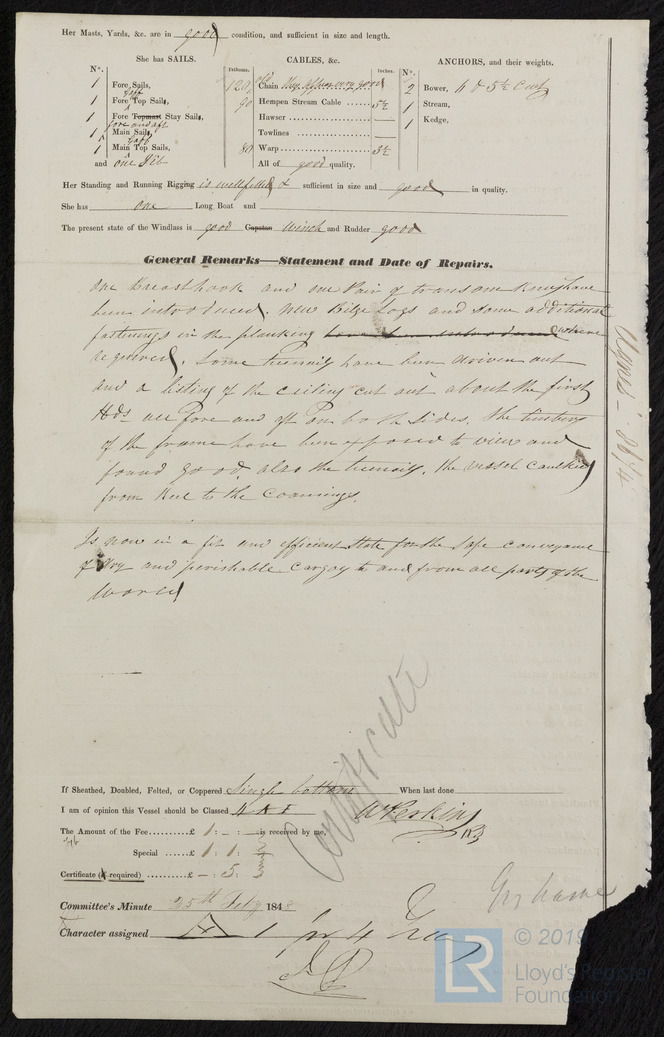 Her Masts, Yards, &c. are in good condition, and sufficient in size and length.
She has SAILS.
Nº.
1 Fore Sails,
1 Fore gaff Top Sails,
1 Fore Topmast Stay Sails,
1 fore and aft Main Sails,
1 gaff Main Top Sails,
and one Jib
CABLES, &c.
Fathoms.
Inches.
120 Chain good
90 Hempen Stream Cable ...... 5½
Hawser ........................ —
Towlines ..................... —
80 Warp ........................... 3½
All of good quality.
ANCHORS, and their weights.
Nº.
2 Bower, 6 & 5½ Cwt
1 Stream,
1 Kedge,
Her Standing and Running Rigging is well fitted & sufficient in size and good in quality.
She has one Long Boat and
The present state of the Windlass is good Capstan Winch and Rudder good
General Remarks—Statement and Date of Repairs.
One Breasthook and one Pair of transom Knees have
been introduced. New Bilge Logs and some additional
fastenings in the planking have been introduced where
required. Some treenails have been driven out
and a listing of the ceiling cut out about the first
Hds all fore and aft on both sides. the timbers
of the frame have been exposed to view and
found good. also the treenails. the vessel caulked
from Keel to the Coamings.
Is now in a fit and efficient State for the safe conveyance
of Dry and perishable Cargoes to and from all parts of the
World
Agnes - 364
Certificate
If Sheathed, Doubled, Felted, or Coppered Single bottom When last done
I am of opinion this Vessel should be Classed
The Amount of the Fee..........£ 1 : - : - is received by me,
Special ......£ 1 : 1 :
Certificate (if required) ....£ - : 5 :
Committee's Minute 25th Feby 184
Character assigned A 1 for 4 Yrs
LR
© 2019
Lloyd's Register
Foundation